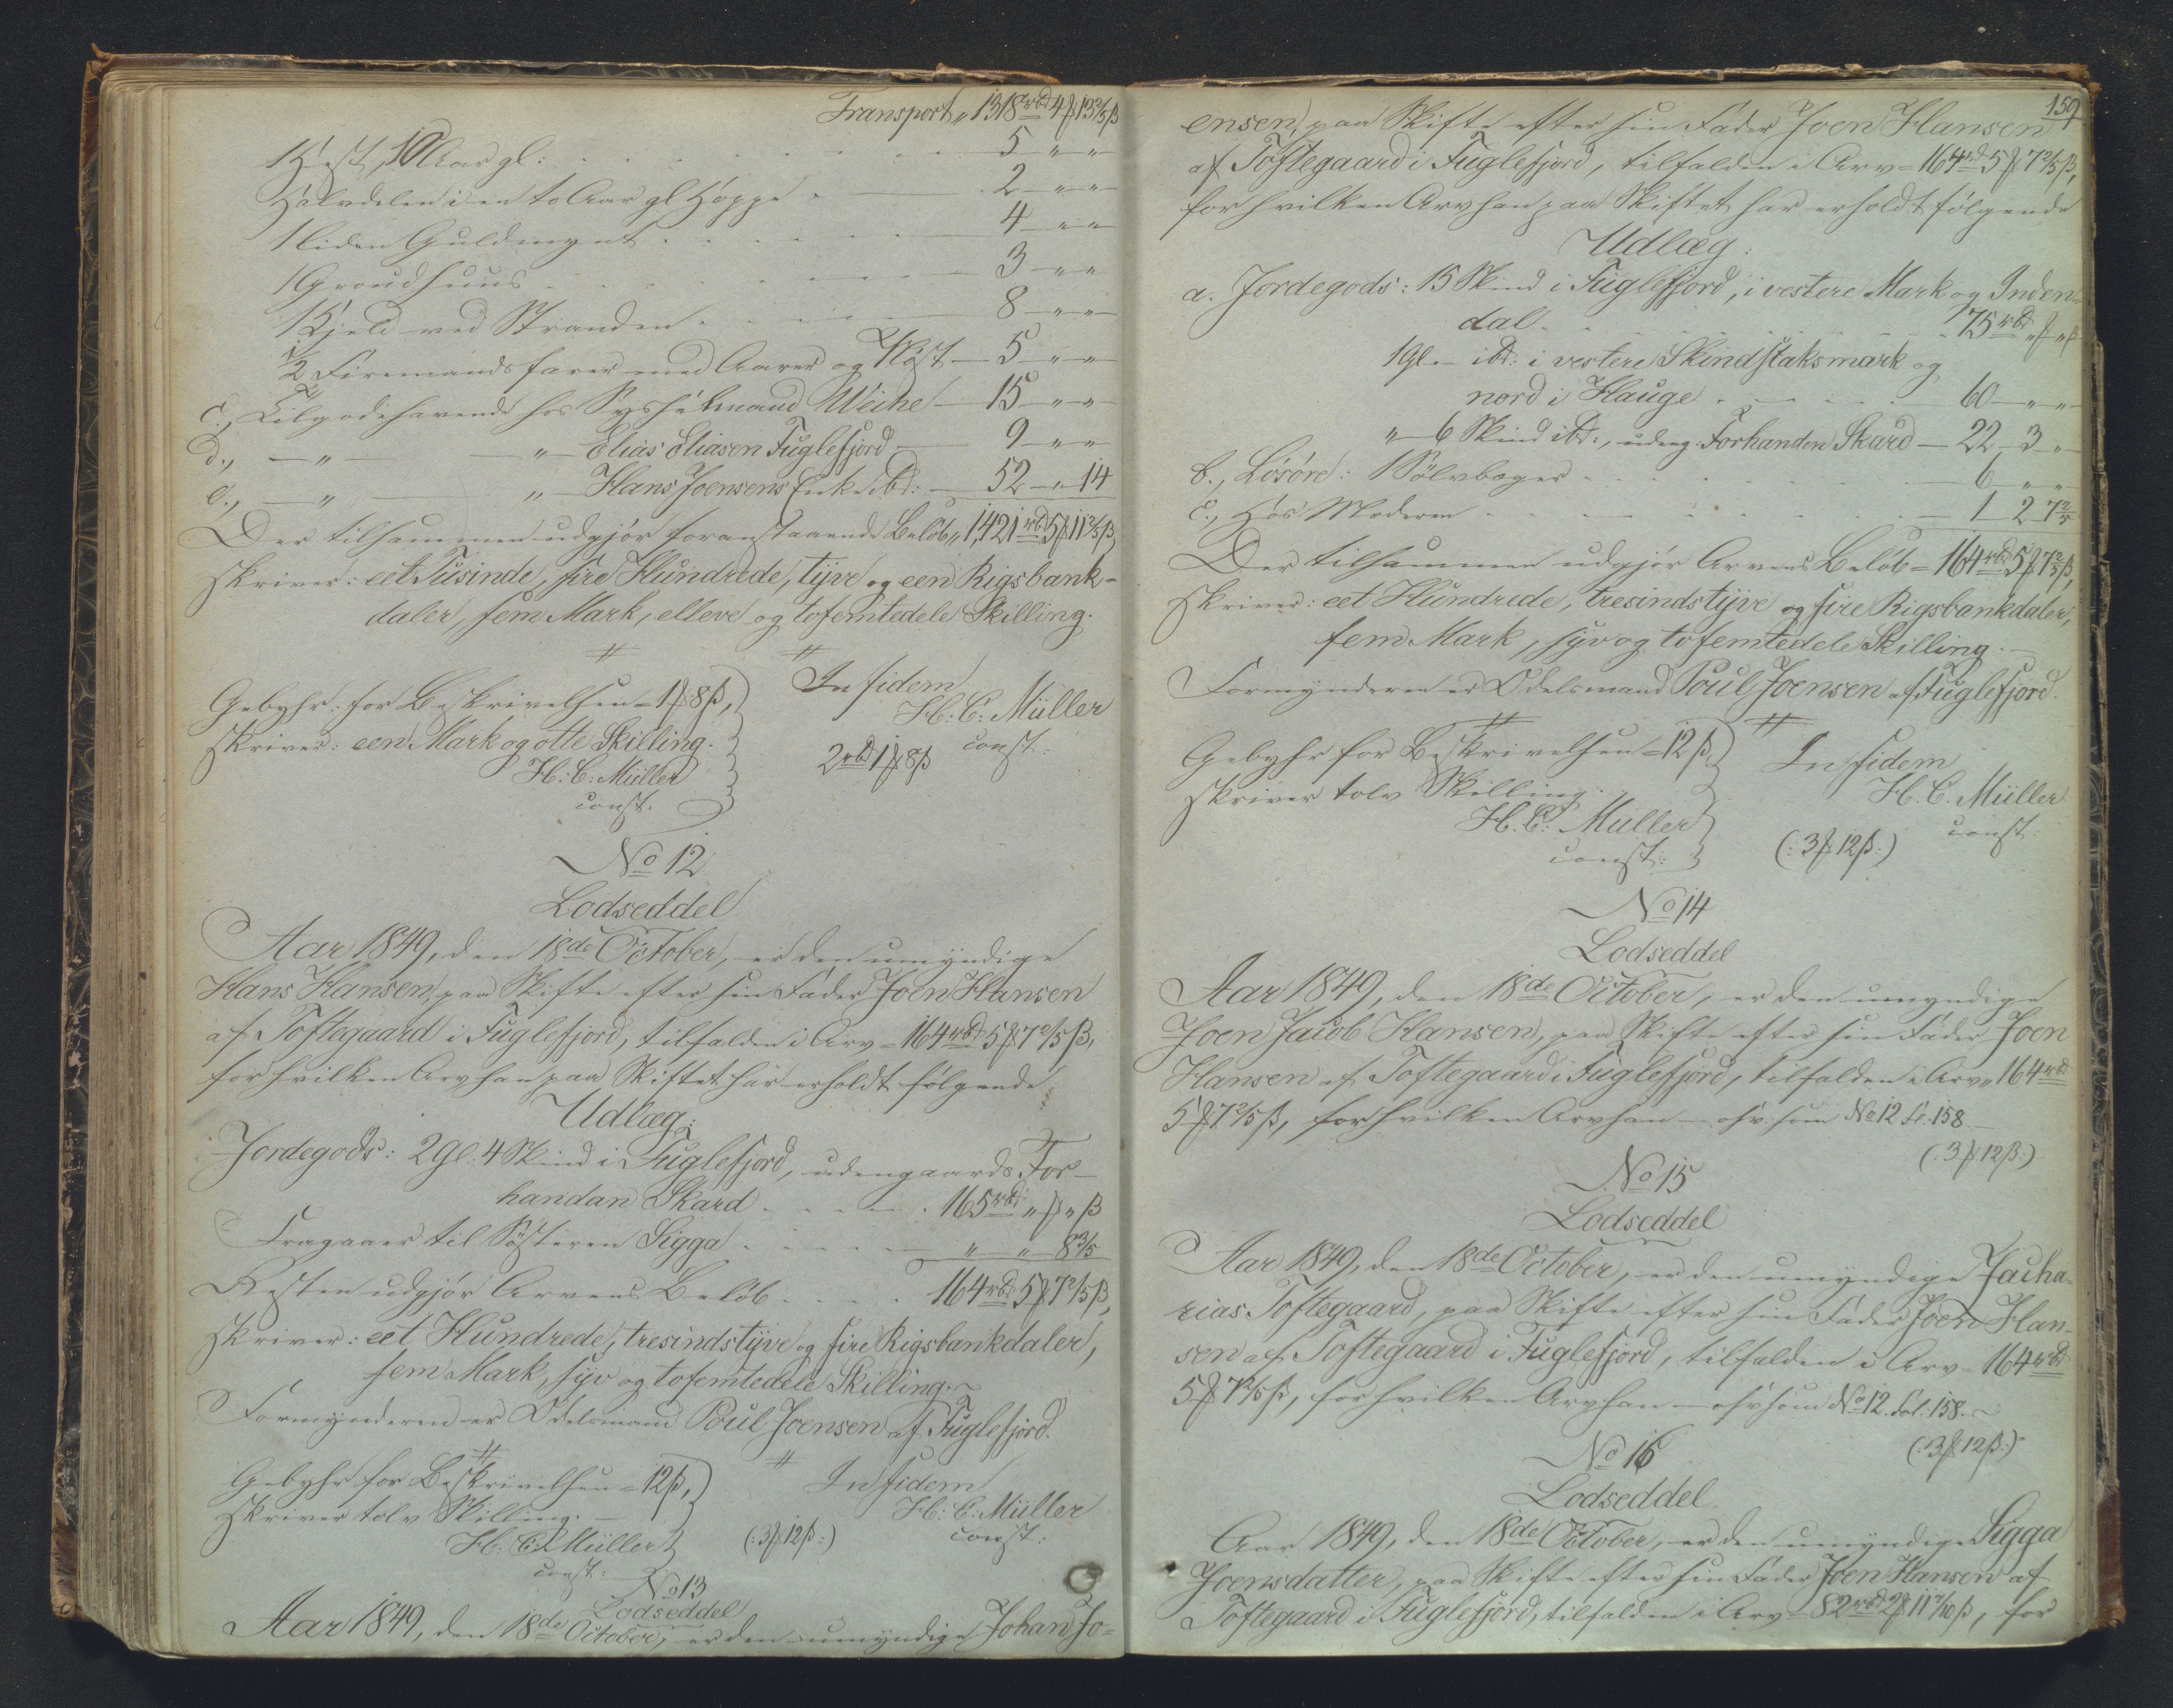 Transport „ 1318 rbd 4 ₰ 13 2/5 ß
1 Hest, 10 Aar gl: 5 „ „
Halvdelen i en to Aar gl Hoppe 2 „ „
1 liden Guldmynt 4 „ „
1 Groudhuus 3 „ „
1 Kjeld ved Stranden 8 „ „
1/2 Firemandsfarer med Aarer og Kost 5 „ „
c., Tilgodehavende hos Sysselmand Weihe 15 „ „
d., „ „ Elias Eliasen Fuglefjord 9 „ „
e., „ „ Hans Joensens Enke ibd: 52 „ 14
Der tilsammen udgjør foranstaaende Beløb „ 1,421 rbd 5 ₰ 11 2/5 ß,
skriver: eet Tusinde, fire Hundrede, tyve og een Rigsbank-
daler, fem Mark, elleve og tofemtedele Skilling.
Gebyhr: for Beskrivelsen = 1 ₰ 8 ß,
skriver: een Mark og otte Skilling.
H: C: Müller
const.
In fidem
H: C: Müller
const:
2 rbd 1 ₰ 8 ß
No 12
Lodseddel
Aar 1849, den 18de October, er den umyndige
Hans Hansen, paa Skifte efter sin Fader Joen Hansen
af Toftegaard i Fuglefjord, tilfalden i Arv = 164 rbd 5 ₰ 7 2/5 ß,
for hvilken Arv han paa Skiftet har erholdt følgende
Udlæg:
Jordegods: 2 Gl. 4 Skind i Fuglefjord, udengaards For-
handan Skard 165 rbd „ ₰ „ ß
Fragaaer til Søsteren Sigga „ „ 8 3/5
Resten udgjør Arvens Beløb 164 rbd 5 ₰ 7 2/5 ß,
skriver: eet Hundrede, tresindstyve og fire Rigsbankdaler,
fem Mark, syv og tofemtedele Skilling.
Formynderen er Odelsmand Poul Joensen af Fuglefjord.
Gebyhr for Beskrivelsen = 12 ß,
skriver tolv Skilling.
H: C: Müller
const:
In fidem
H: C: Müller
const:
(: 3 ₰ 12 ß :)
No 13
Lodseddel
Aar 1849, den 18de October, er den umyndige Johan Jo-
159
ensen, paa Skifte efter sin Fader Joen Hansen
af Toftegaard i Fuglefjord, tilfalden i Arv = 164 rbd 5 ₰ 7 2/5 ß,
for hvilken Arv han paa Skiftet har erholdt følgende
Udlæg:
a. Jordegods: 15 Skind i Fuglefjord, i vestere Mark og Inden-
dal 75 rbd „ ₰ „ ß
1 Gl. ibd: i vestere Skindstaksmark og
nord i Hauge 60 „ „
„ 6 Skind ibd:, udeng: Forhanden Skard 22 3 „
b., Løsøre: 1 Sølvbæger 6 „ „
c., Hos Moderen 1 2 7 2/5
Der tilsammen udgjør Arvens Beløb = 164 rbd 5 ₰ 7 2/5 ß,
skriver: eet Hundrede, tresindstyve og fire Rigsbankdaler,
fem Mark, syv og tofemtedele Skilling.
Formynderen er Odelsmand Poul Joensen af Fuglefjord.
Gebyhr for Beskrivelsen = 12 ß,
skriver tolv Skilling.
H. C: Müller
const:
In fidem
H. C. Müller
const:
(: 3 ₰ 12 ß :)
No 14
Lodseddel
Aar 1849, den 18de October, er den umyndige
Joen Jacob Hansen, paa Skifte efter sin Fader Joen
Hansen af Toftegaard i Fuglefjord, tilfalden i Arv „ 164 rbd
5 ₰ 7 2/5 ß, for hvilken Arv han — osv. som No 12 fo: 158.
(: 3 ₰ 12 ß :)
No 15
Lodseddel
Aar 1849, den 18de October, er den umyndige Zacha-
rias Toftegaard, paa Skifte efter sin Fader Joen Han-
sen af Toftegaard i Fuglefjord, tilfalden i Arv = 164 rbd
5 ₰ 7 2/5 ß, for hvilken Arv han — osv som No 12. fol: 158.
(: 3 ₰ 12 ß :)
No 16
Lodseddel
Aar 1849, den 18de October, er den umyndige Sigga
Joensdatter, paa Skifte efter sin Fader Joen Hansen af
Toftegaard i Fuglefjord, tilfalden i Arv = 82 rbd 2 ₰ 11 7/10 ß, for